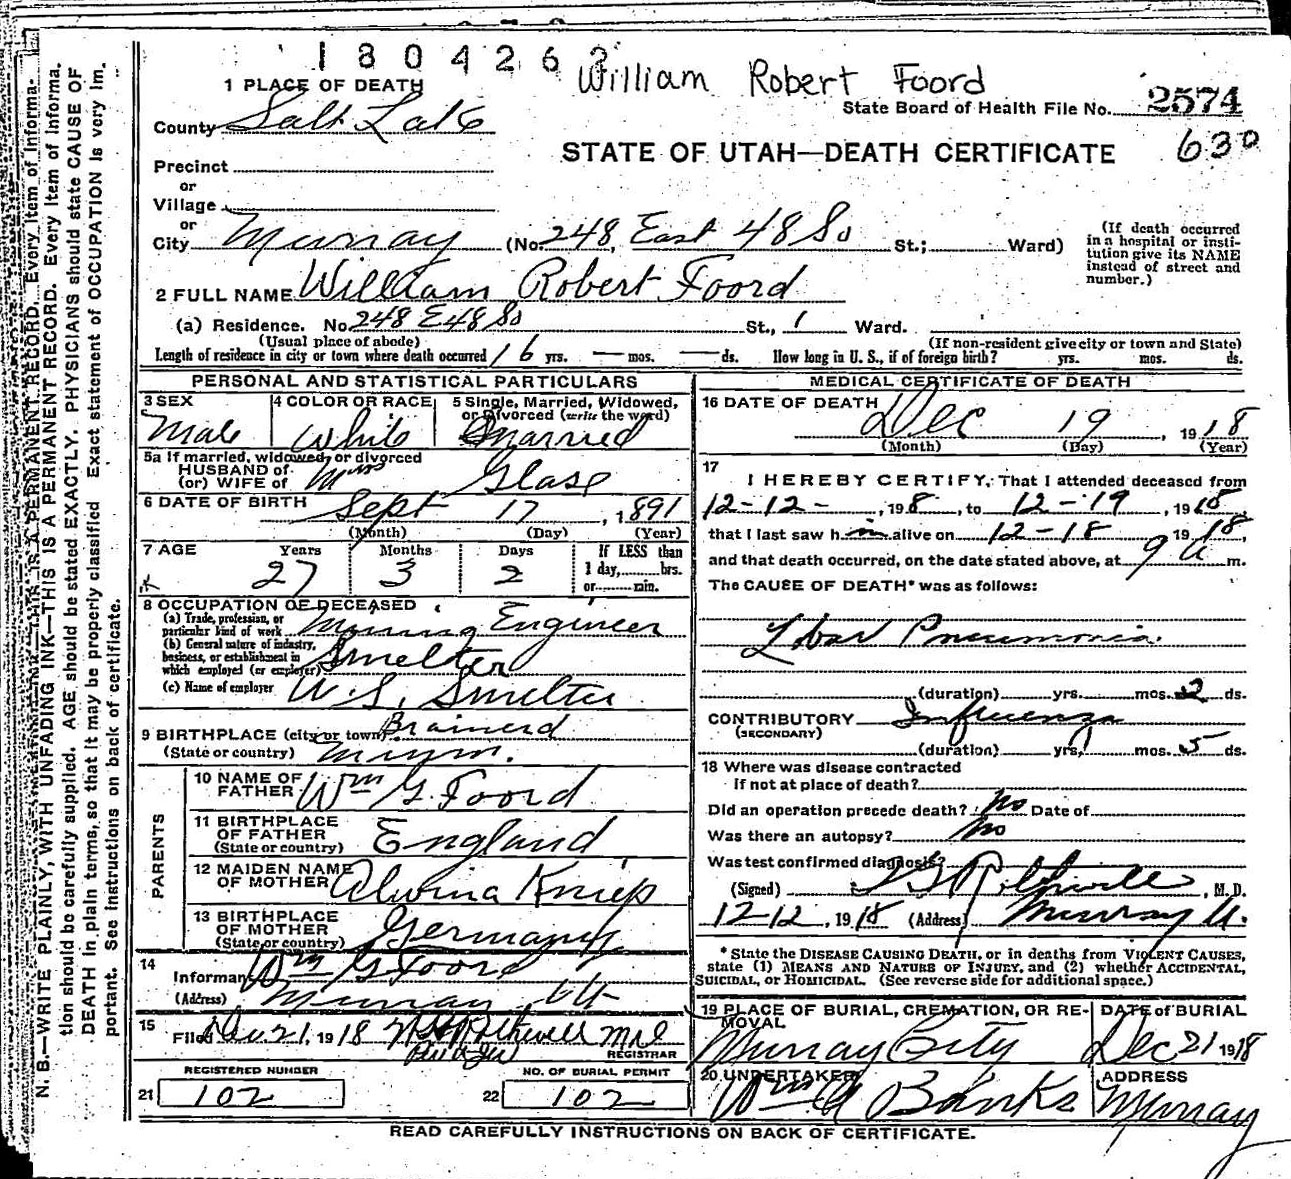 1804263
William Robert Foord
1 PLACE OF DEATH
State Board of Health File No. 2574
County Salt Lake
STATE OF UTAH—DEATH CERTIFICATE 630
Precinct
or
Village
or
City Murray (No. 248, East 48 So St.; Ward)
(If death occurred in a hospital or institution give its NAME instead of street and number.)
2 FULL NAME William Robert Foord
(a) Residence. No 248 E 48 So St., 1 Ward.
(Usual place of abode) (If non-resident give city or town and State)
Length of residence in city or town where death occurred 16 yrs. — mos. — ds. How long in U. S., if of foreign birth? yrs. mos. ds.
PERSONAL AND STATISTICAL PARTICULARS
3 SEX Male
4 COLOR OR RACE White
5 Single, Married, Widowed, or Divorced (write the word) Married
5a If married, widowed, or divorced
HUSBAND of
(or) WIFE of Mrs Glase
6 DATE OF BIRTH Sept 17, 1891
(Month) (Day) (Year)
7 AGE Years Months Days If LESS than
27 3 2 1 day, hrs.
or min.
8 OCCUPATION OF DECEASED
(a) Trade, profession, or particular kind of work Mining Engineer
(b) General nature of industry, business, or establishment in which employed (or employer) Smelter
(c) Name of employer U.S. Smelter
9 BIRTHPLACE (city or town) Brainerd
(State or country) Minn.
PARENTS
10 NAME OF FATHER Wm G. Foord
11 BIRTHPLACE OF FATHER (State or country) England
12 MAIDEN NAME OF MOTHER Alvina Kniep
13 BIRTHPLACE OF MOTHER (State or country) Germany
14
Informant Wm G Foord
(Address) Murray, Ut
15
Filed Dec 21, 1918 Rothwell MD
REGISTRAR
REGISTERED NUMBER NO. OF BURIAL PERMIT
21 102 22 102
MEDICAL CERTIFICATE OF DEATH
16 DATE OF DEATH
Dec 19, 1918
(Month) (Day) (Year)
17
I HEREBY CERTIFY, That I attended deceased from
12-12-, 1918, to 12-19, 1918,
that I last saw him alive on 12-18 1918,
and that death occurred, on the date stated above, at 9 a m.
The CAUSE OF DEATH* was as follows:
Lobar Pneumonia.
(duration) yrs. mos. 2 ds.
CONTRIBUTORY Influenza
(SECONDARY)
(duration) yrs. mos. 5 ds.
18 Where was disease contracted
if not at place of death?
Did an operation precede death? No Date of
Was there an autopsy? No
Was test confirmed diagnosis?
(Signed) Rothwell, M. D.
12-12, 1918 (Address) Murray U.
*State the DISEASE CAUSING DEATH, or in deaths from VIOLENT CAUSES,
state (1) MEANS AND NATURE OF INJURY, and (2) whether ACCIDENTAL,
SUICIDAL, or HOMICIDAL. (See reverse side for additional space.)
19 PLACE OF BURIAL, CREMATION, OR REMOVAL DATE of BURIAL
Murray City Dec 21 1918
20 UNDERTAKER ADDRESS
Wm A Banks Murray
READ CAREFULLY INSTRUCTIONS ON BACK OF CERTIFICATE.
N. B.—WRITE PLAINLY, WITH UNFADING INK—THIS IS A PERMANENT RECORD. Every Item of Informa-
tion should be carefully supplied. AGE should be stated EXACTLY. PHYSICIANS should state CAUSE OF
DEATH in plain terms, so that it may be properly classified Exact statement of OCCUPATION is very Im-
portant. See instructions on back of certificate.